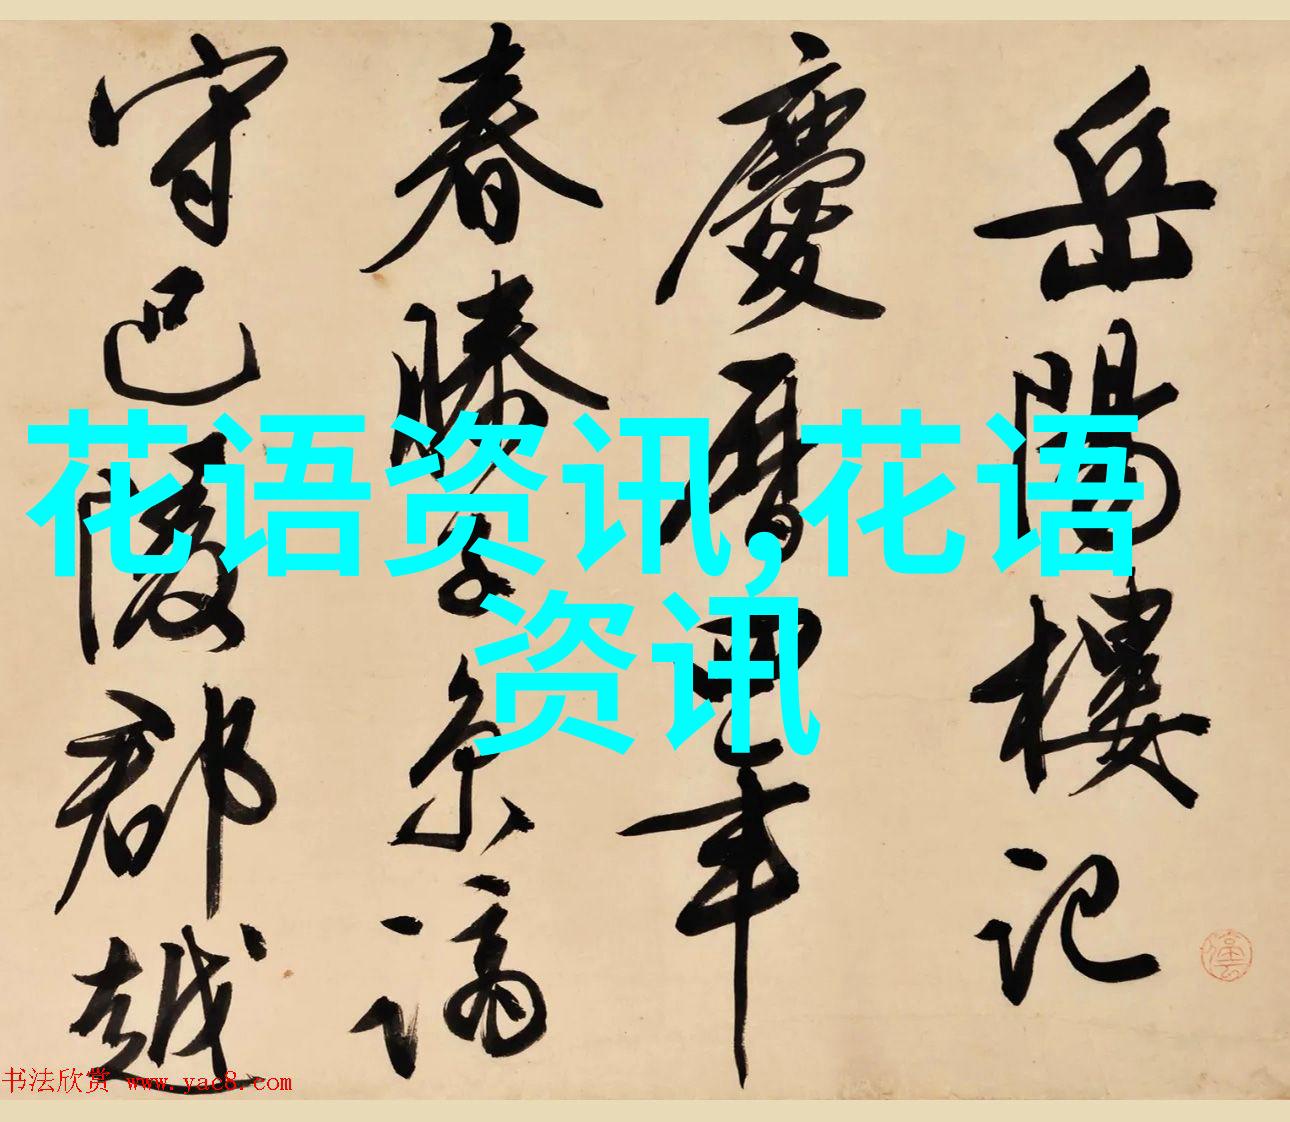 岳陽樓記
慶曆四年
春滕子京謫
守巴陵郡越
花语资讯,花语
资讯
书法欣赏 www.yac8.com